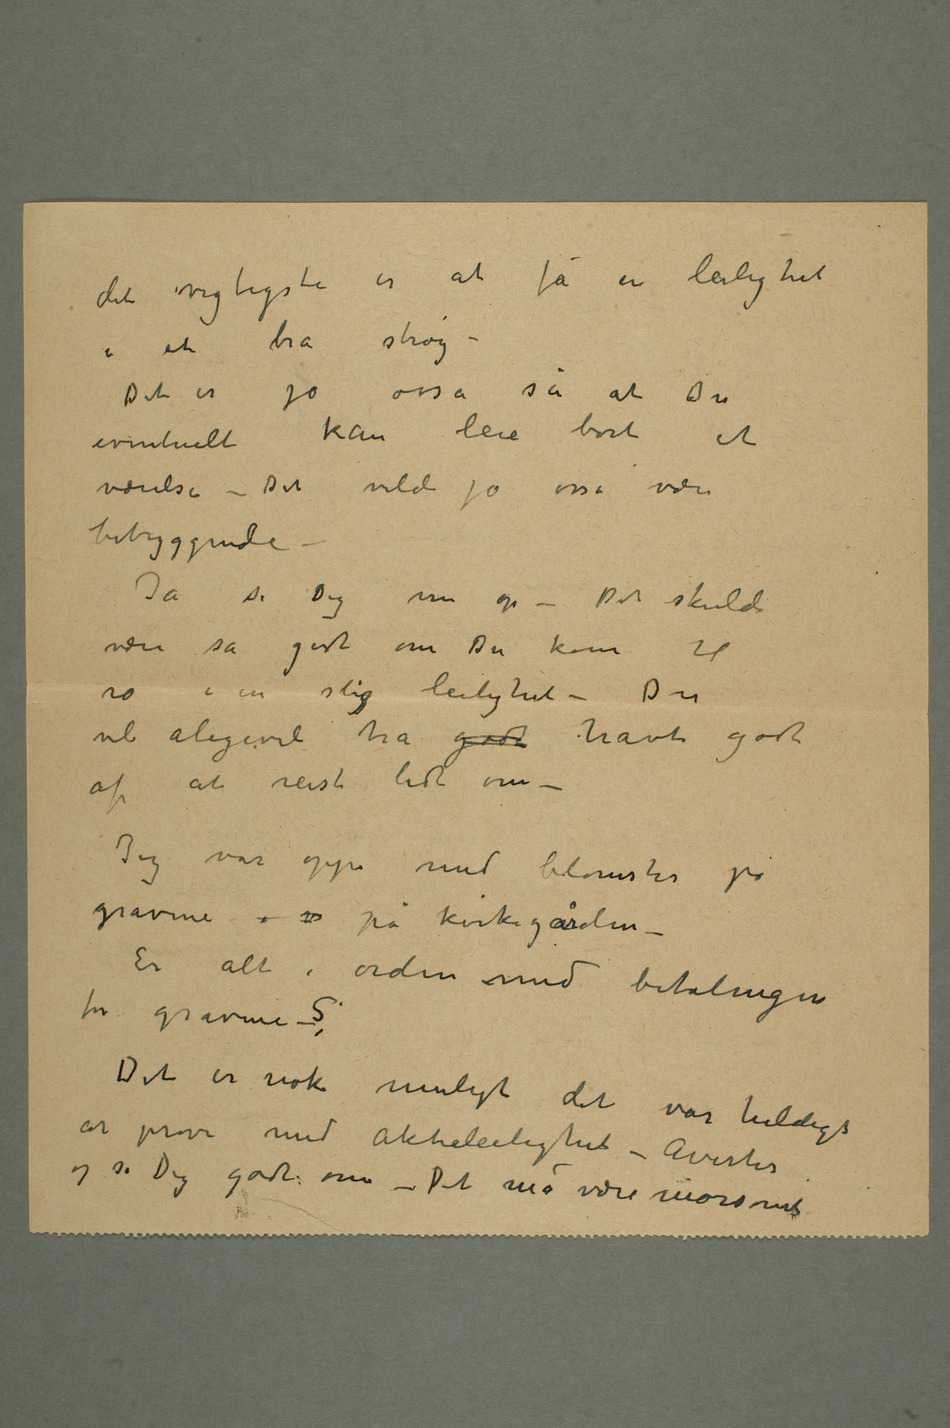 det vigtigste er at få en leilighet
i et bra strøg –
Det er jo osså så at Du
eventuelt kan leie bort et
værelse – Det vilde jo osså være
betryggende –
Ja se Dig nu op – Det skulde
være så godt om Du kom til
ro i en slig leilighet – Du
vil aligevel ha godt havt godt
af at reist lidt om –
Jeg var oppe med blomster på
gravene på kirkegården –
Er alt i orden med betalingen
for gravene –?
Det er nok muligt det var heldigst
at prøve med aktieleilighet – Averter
og se Dig godt om – Det må være morsomt